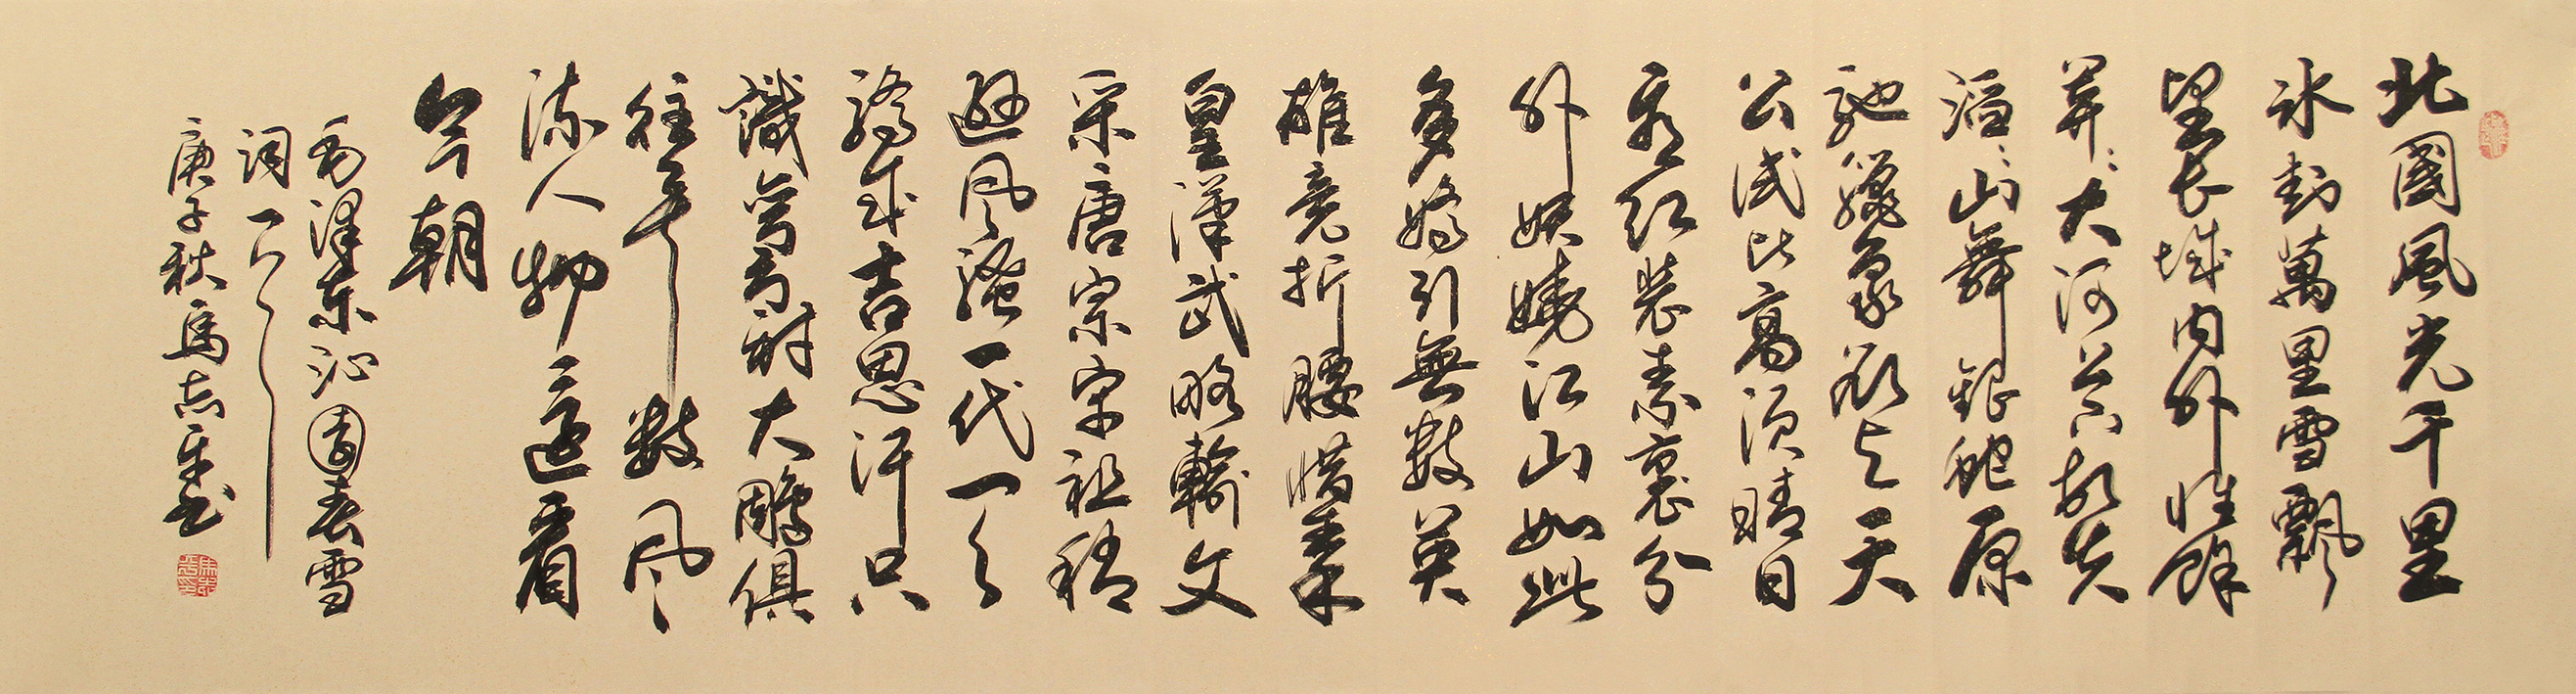 北國風光千里
冰封萬里雪飄
望长城内外惟餘
莽々大河上下顿失
滔々山舞銀蛇原
馳蠟象欲与天
公试比高须晴日
看红裝素裹分
外妖嬈江山如此
多嬌引無數英
雄竞折腰惜秦
皇漢武略輸文
采唐宗宋祖稍
逊风骚一代天
骄成吉思汗只
識弯弓射大雕俱
往矣数风
流人物还看
今朝
毛泽东沁园春雪
词一首
庚子秋馬志书